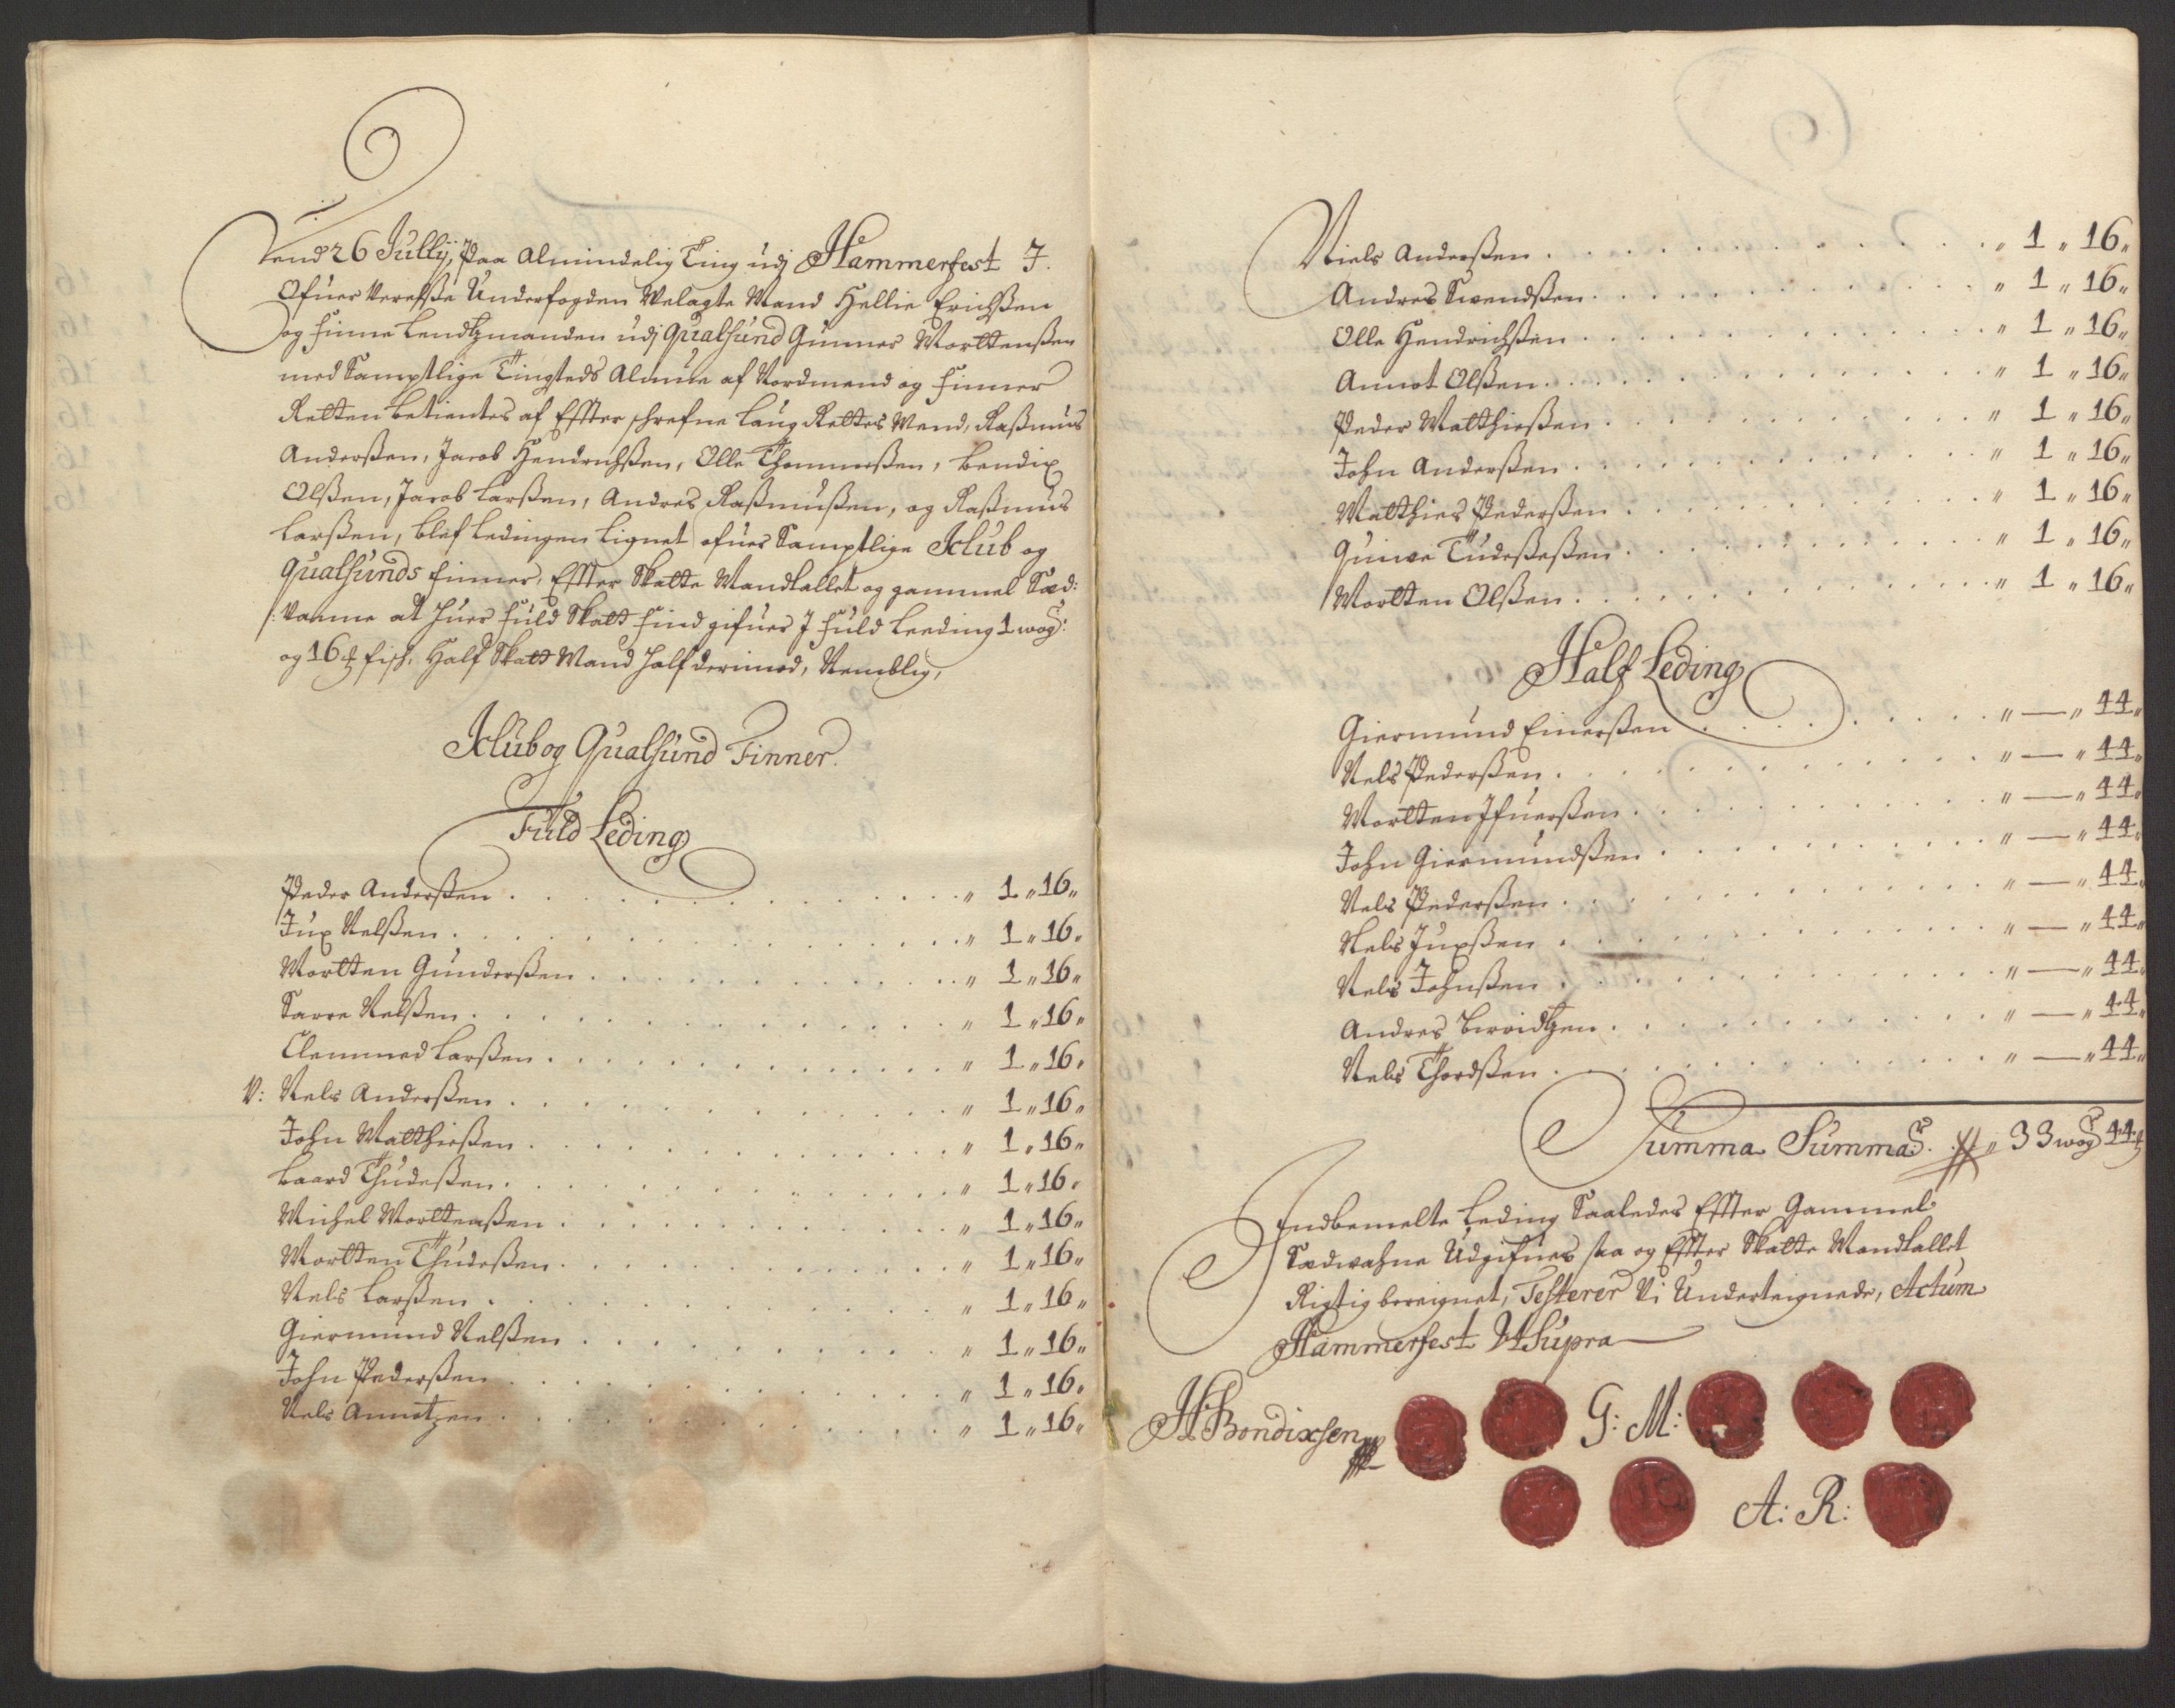 Dend 26 Jullÿ, Paa Almindelig Ting udj Hammerfest J.
Ofuer Verelsße Underfogden Velagte Mand Hellie Erichßen
og Finne Lendtzmanden udj Qualsund Gunner Morttenßen
med Samptlige Tingsteds Almue af Nordmend og Finner
Retten betientes af Effterschrefne Laug Rettes Mend, Raßmus
Anderßen, Jacob Hendrichßen, Olle Thommeßen, Bendix
Olßen, Jacob Larßen, Andres Raßmußen, og Raßmus
Larßen, blef Ledingen Lignet ofuer Samptlige Klub og
Qualsunds Finner, Effter Skatte Mandtallet og gammel Sæd:
/: Vanne at huer fuld Skatt Find gifuer J fuld Leeding 1 wog:
og 16 ℔ fish, Half Skatt Mand half derimod, Nemblig,
Klub og Qualsund Finner.
Fuld Leding
Peder Anderßen . . . „ 1 „ 16 „
Jux Nelßen . . . „ 1 „ 16 „
Mortten Gunderßen . . . „ 1 „ 16 „
Sarre Nelßen . . . „ 1 „ 16 „
Clemmed Larßen . . . „ 1 „ 16 „
V: Nels Anderßen . . . „ 1 „ 16 „
John Matthießen . . . „ 1 „ 16 „
Baard Thudeßen . . . „ 1 „ 16 „
Michel Mortenßen . . . „ 1 „ 16 „
Mortten Thudeßen . . . „ 1 „ 16 „
Nels Larßen . . . „ 1 „ 16 „
Giermund Nelßen . . . „ 1 „ 16 „
John Pederßen . . . „ 1 „ 16 „
Nels Annotzen . . . „ 1 „ 16 „
Niels Anderßen . . . „ 1 „ 16 „
Andres Swendßen . . . „ 1 „ 16 „
Olle Hendrichßen . . . „ 1 „ 16 „
Annot Olßen . . . „ 1 „ 16 „
Peder Matthießen . . . „ 1 „ 16 „
John Anderßen . . . „ 1 „ 16 „
Matthies Pederßen . . . „ 1 „ 16 „
Quiwe Tudeßeßen . . . „ 1 „ 16 „
Mortten Olßen . . . „ 1 „ 16 „
Half Leding
Giermund Einerßen . . . „ — „ 44 „
Nels Pederßen . . . „ — „ 44 „
Mortten Ifuerßen . . . „ — „ 44 „
John Giermundßen . . . „ — „ 44 „
Nels Pederßen . . . „ — „ 44 „
Nels Juxßen . . . „ — „ 44 „
Nels Johnßen . . . „ — „ 44 „
Andres Berridtzen . . . „ — „ 44 „
Nels Thordßen . . . „ — „ 44 „
Summa Summar. „ 33 wog 44 ℔
Indbemelte Leding Saaledes Effter Gammel
Sædwahne Udgifues saa og Effter Skatte Mandtallet
Rigtig beregnet, Testerer Vi Underteignede, Actum
Hammerfest Ut Supra
H Bendixsen
G: M:
A: R: